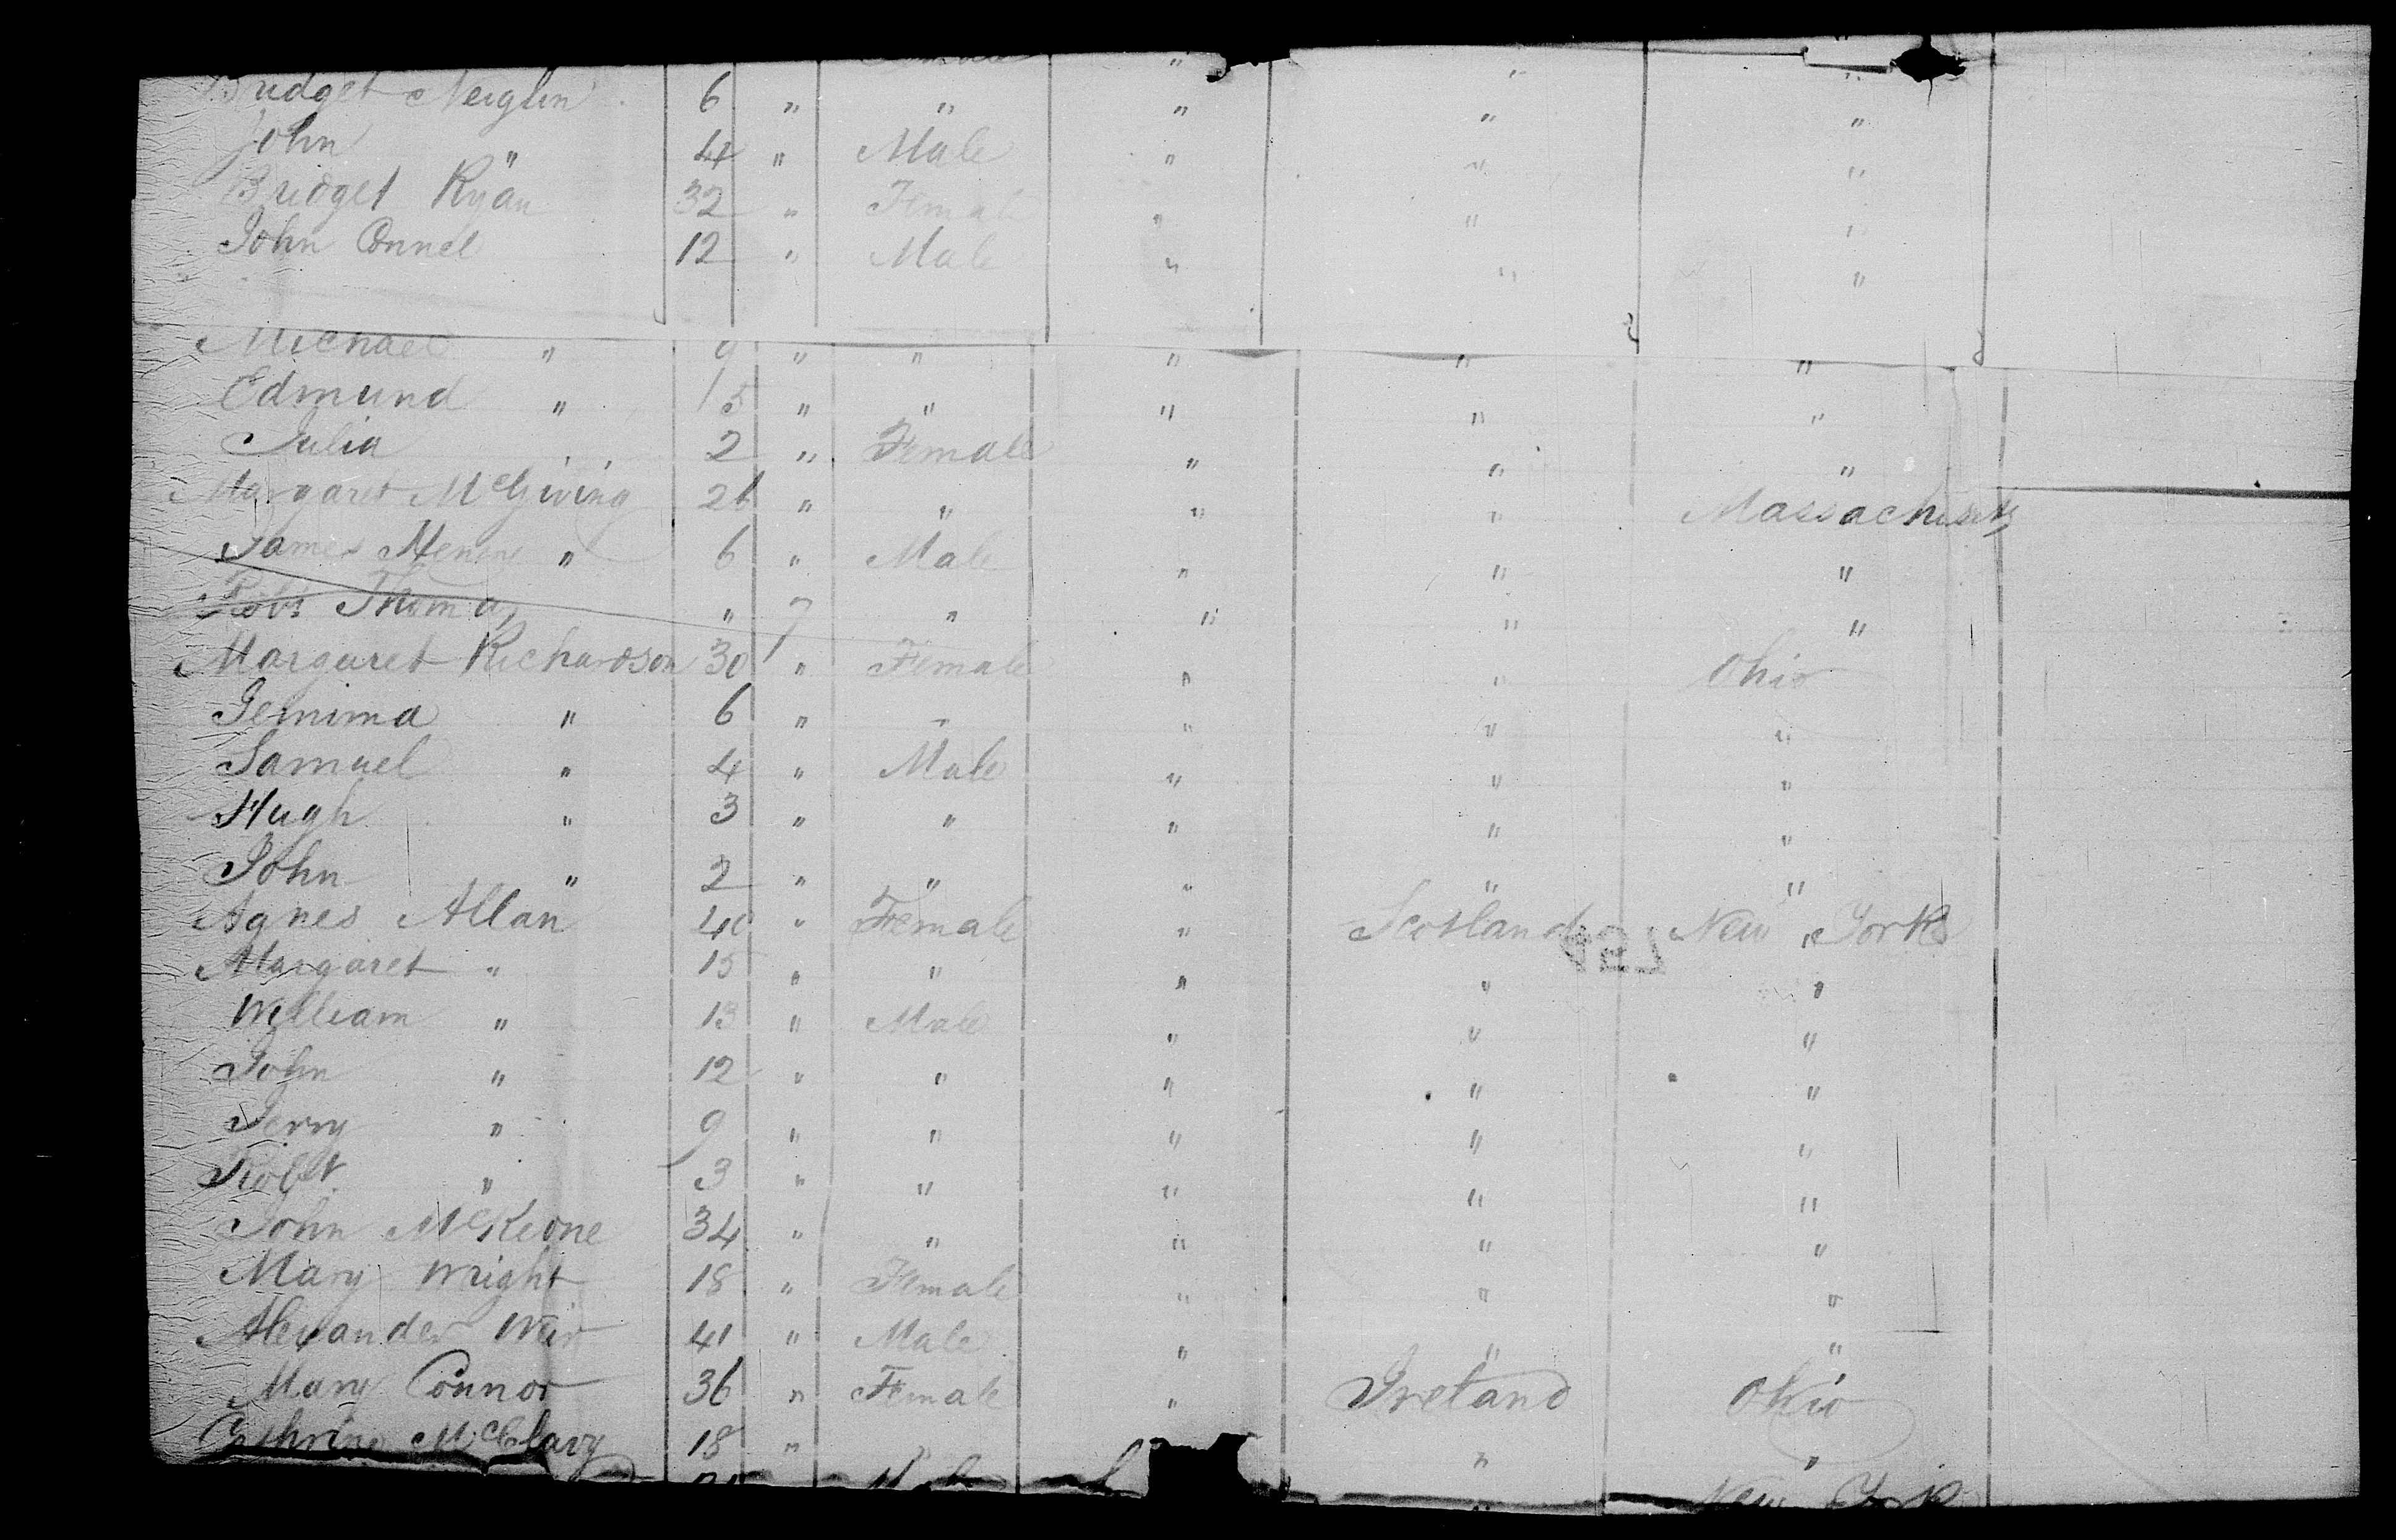 Bridget Neiglin 6 " " " " "
John " 4 " Male " " "
Bridget Ryan 32 " Female " " "
John Connel 12 " Male " " "
Michael " 9 " " " " "
Edmund " 15 " " " " "
Julia " 2 " Female " " "
Margaret McGiving 26 " " " " Massachusetts
James Henry " 6 " Male " " "
Robt Thomas " 7 " " " "
Margaret Richardson 30 " Female " " Ohio
Jemima " 6 " " " " "
Samuel " 4 " Male " " "
Hugh " 3 " " " " "
John " 2 " " " " "
Agnes Allan 40 " Female " Scotland New York
Margaret " 15 " " " " "
William " 13 " Male " " "
John " 12 " " " " "
Jerry " 9 " " " " "
Robt " 3 " " " " "
John McKeone 34 " " " " "
Mary Wright 18 " Female " " "
Alexander Weir 41 " Male " " "
Mary Connor 36 " Female " Ireland Ohio
Cathrine McClavy 18 " " " "
Male " New York